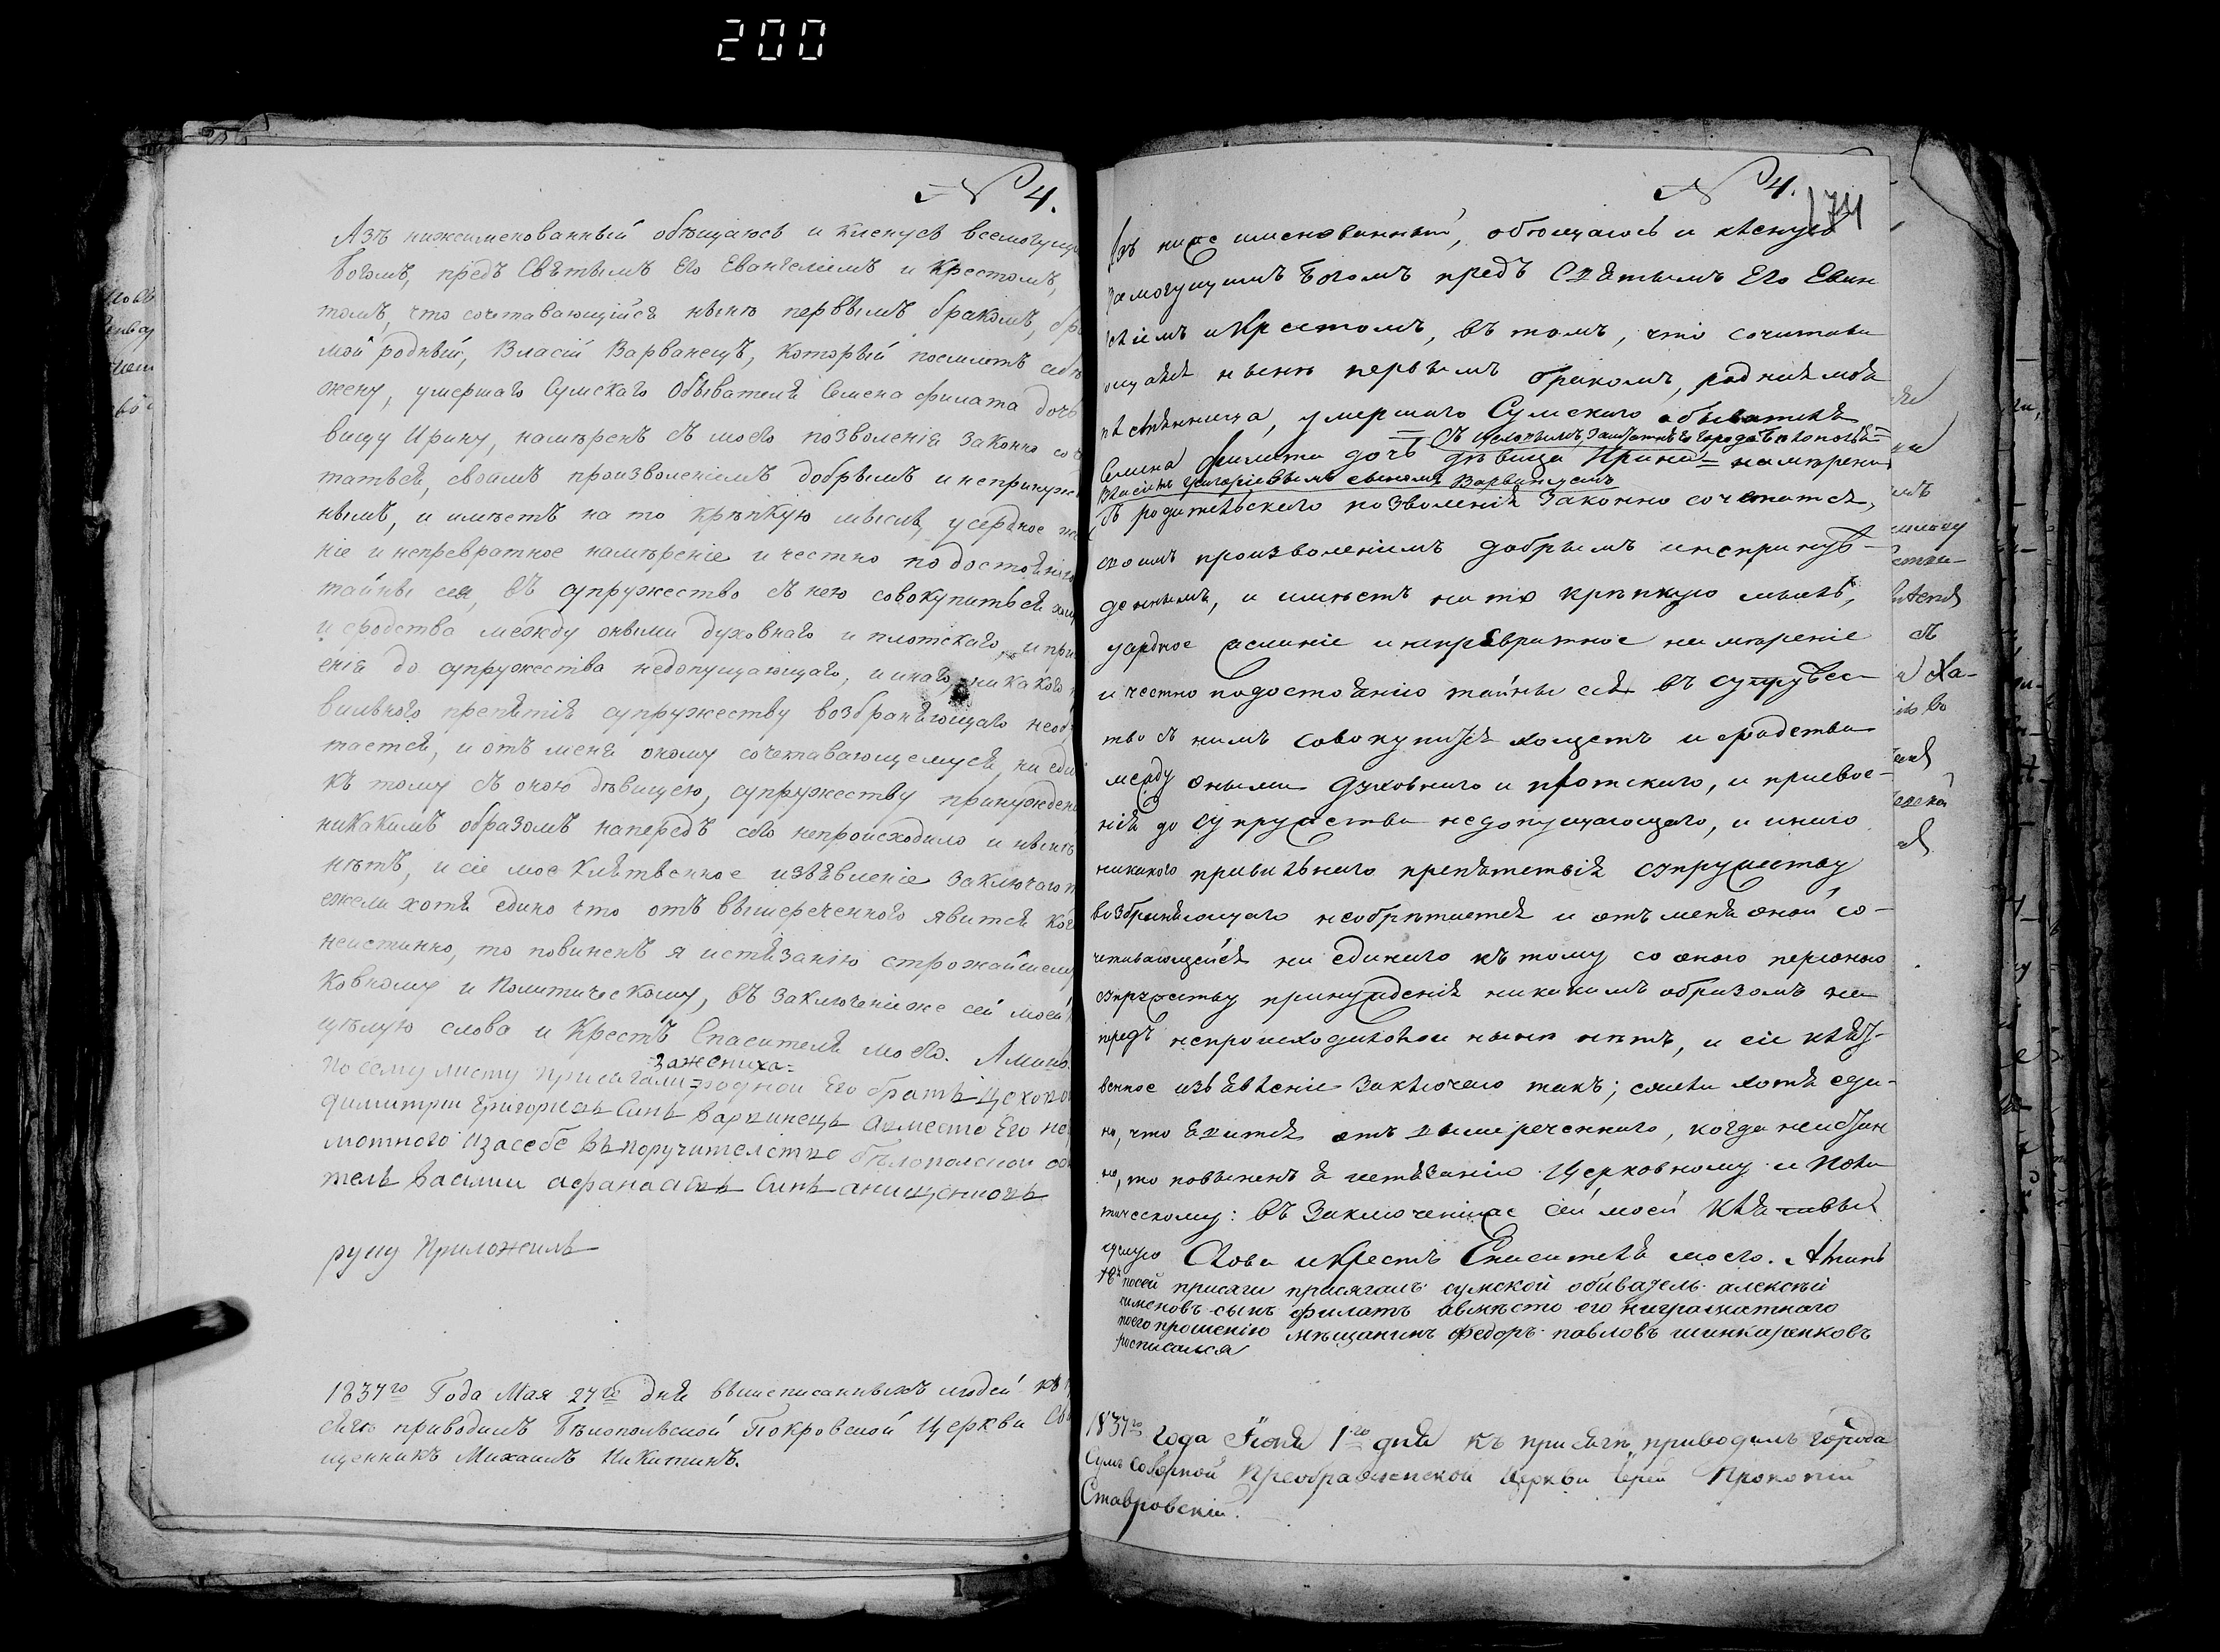 200
№ 4.
Азъ нижеименованный обѣщаюсь и кленусь всемогущи
Богомъ, предъ Святымъ Его Евангеліемъ и Крестомъ,
томъ, что сочетавающійся нынѣ первымъ бракомъ,
мой родный, Власій Варванецъ, который поемлетъ себѣ
жену, умершаго Сумскаго Обывателя Семена Филата дочь
вицу Ирину, намѣренъ съ моего позволенія законно со
татися, своимъ произволеніемъ добрымъ и непринуж
нымъ, и имѣетъ на то крѣпкую мысль, усердное же
ніе и непревратное намѣреніе и честно по достоянію
тайны сея, въ супружество съ нею совокупиться
и сродства между оными духовнаго и плотскаго, и при
енія до супружества недопущающаго, и инаго никакого
вильного препятія супружеству возбраняющаго необ
тается, и отъ меня оному сочетавающемуся, ни еди
къ тому съ оною дѣвицею, супружеству принужден
никакимъ образомъ напередъ сего непроисходило и нынѣ
нѣтъ, и сіе мое клятвенное изъявленіе заключаю
ежели хотя едино что отъ вышереченного явится ког
неистинно, то повиненъ я истязанію строжайшему
ковному и Политическому, въ заключеніи же сей моей
цѣлую слова и Крестъ Спасителя моего. Аминь.
За жениха
По сему листу присягали родной Его братъ
димитрий Григориевъ Синъ Варвинець авместо Его не
мотного изасебе въпоручителство бѣлополской об
тель Василии афанасиевъ Синъ
руку Приложилъ
1837го Года Мая 27го дня вышеписанныхъ людей къ
сягѣ приводилъ Бѣлопольской Покровской Церкви Свя
щенникъ Михаилъ Никитинъ.
№ 4.
174
Азъ ниже именованный, обѣщаюсь и кленусь
Богомъ предъ Святымъ Его Еван
ліемъ и Крестомъ, въ томъ, что сочитава
ющаяся нынѣ первымъ бракомъ, родная моя
умершаго Сумскаго обывателя
съ
Семена Филата дочь дѣвица Ирина намѣрена
Власіемъ Григоріевымъ сыномъ Варванцемъ
съ родительскаго позволенія законно сочетатся,
своимъ произволеніемъ добрымъ и непринуж-
деннымъ, и имѣетъ на то крѣпкую мысль,
усердное желаніе и непревратное намѣреніе
и честно подостоянію тайны сея въ супружес-
тво съ нимъ совокупится хощетъ и сродства
между оными духовнаго и плотскаго, и присвое-
нія до супружества недопущающаго, и инаго
никакого правильнаго препятствія супружеству
возбраняющаго необрѣтается и отъ меня оной со-
четавающейся ни единаго къ тому со оного персоною
супружеству принужденія никакимъ образомъ на
предъ непроисходило и нынѣ нѣтъ, и сіе клят-
венное изъявленіе заключаю такъ; ежели хотя еди-
но, что явится отъ вышереченнаго, когда неистин
но, то повиненъ я истязанію Церковному и Поли
тическому: въ заключеніиже сей моей клятвы
цѣлую Слова и Крестъ Спасителя моего. Аминь
посей присяги присягалъ сумской обиватель алексѣй
сименовъ сынъ филатъ авмѣсто его ниграматнаго
поего прошенію мѣщанинъ Федоръ павловъ шинкаренковъ
росписался
1837го года Іюня 1го дня къ присягѣ приводилъ города
Сумъ Соборной Преображенской Церкви Іерей Прокопій
Ставровскій.